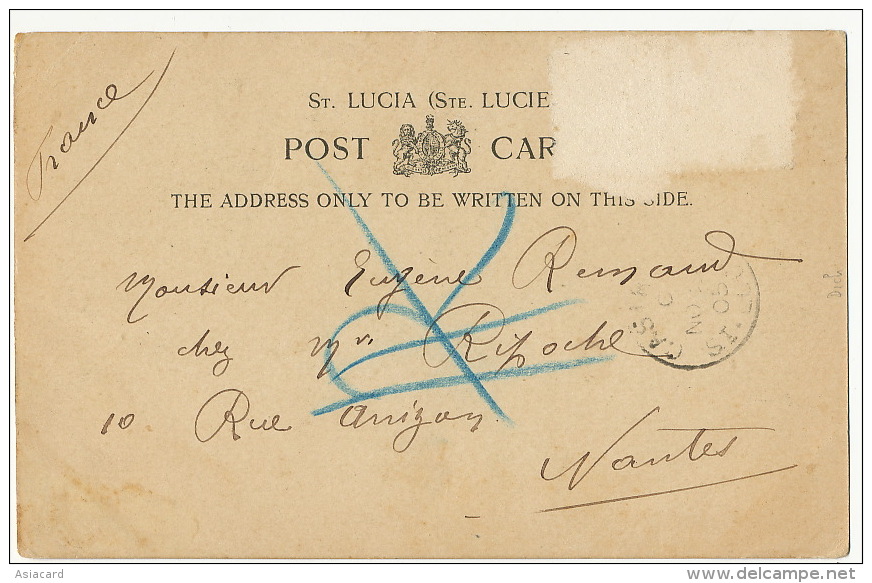 France
ST. LUCIA (STE. LUCIE
POST CAR
THE ADDRESS ONLY TO BE WRITTEN ON THIS SIDE.
Monsieur Eugène Renaud
chez Mr Ripoche
10 Rue Arrizan
Nantes
CAS
C
NO
05
ST. LUC
Asiacard
delcampe.net